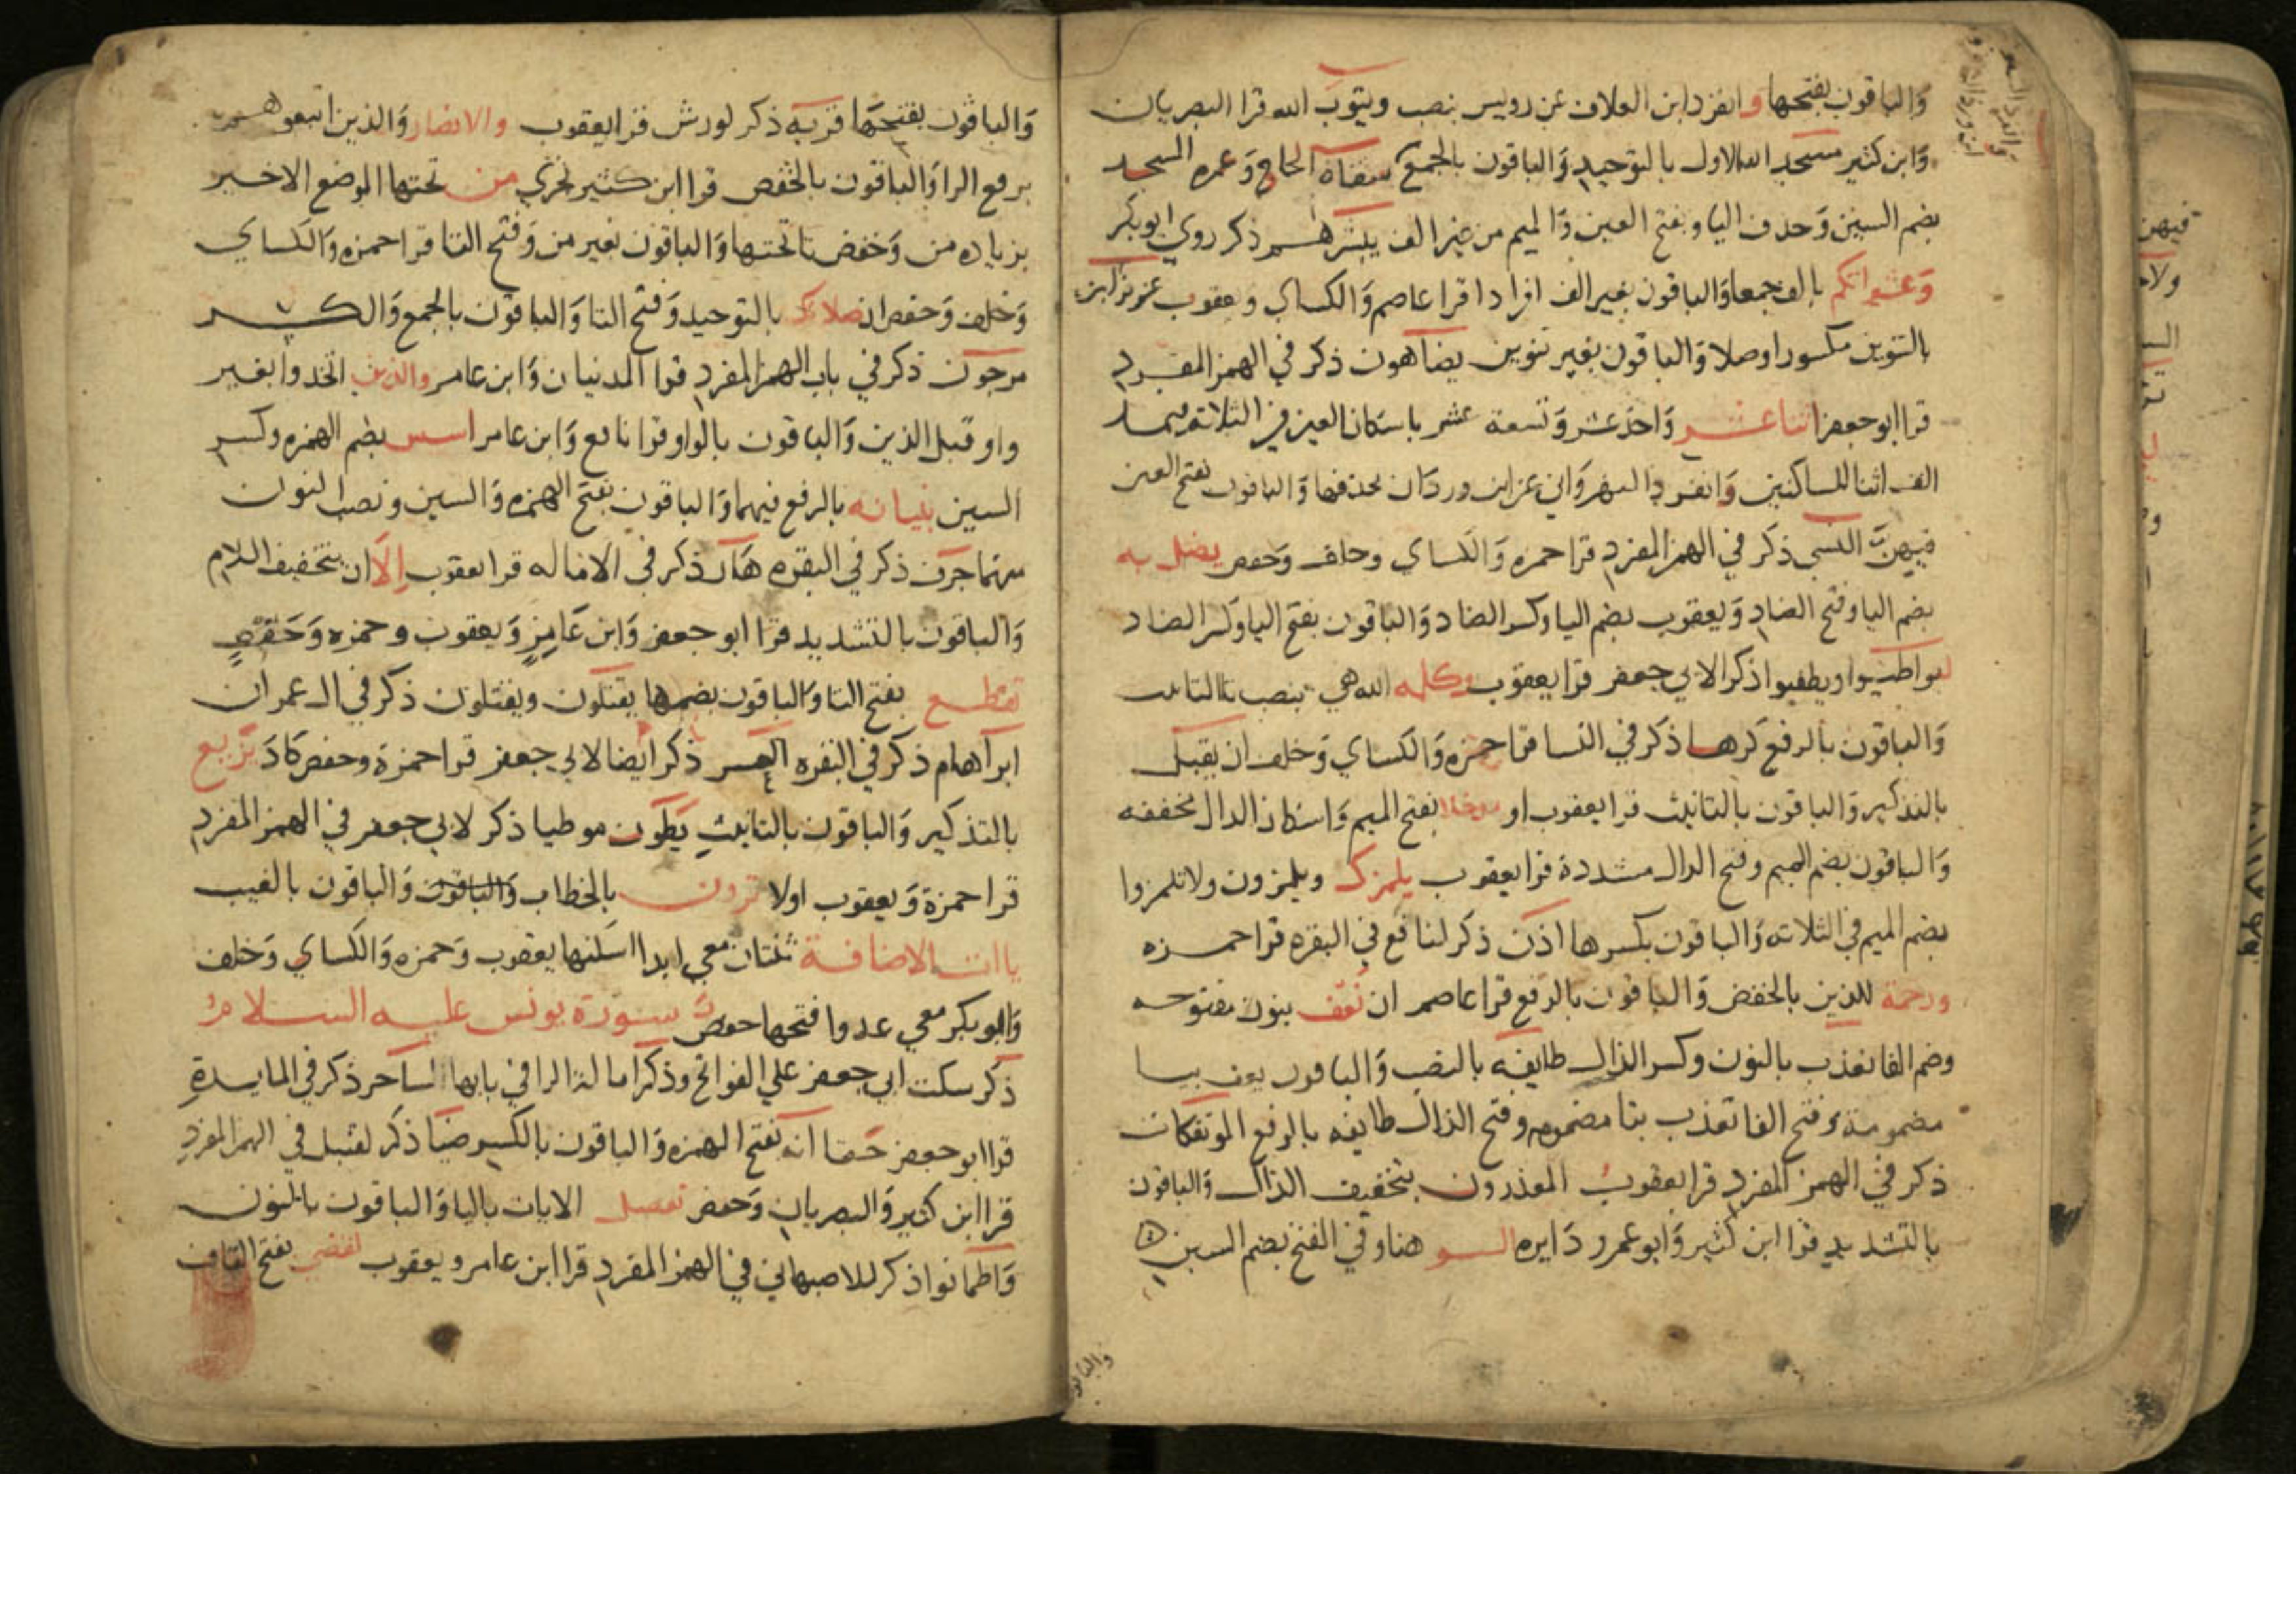 والباقون بفتحها وانفرد ابن العلاف عن رويس بنصب ويتوب الله قرا البصريان
وابن كثير مسجد الله الاول بالتوحيد والباقون بالجمع سقاة الحاج وعمرة المسجد
بضم السين وحذف اليا وبفتح العين والميم من غير الف يبشرهم ذكر روي ابو بكر
وعشيراتكم بالف جمعا والباقون بغير الف افرادا قرا عاصم والكساي ويعقوب عزير ابن
بالتنوين مكسورا وصلا والباقون بغير تنوين يضاهون ذكر في الهمز المفرد
قرا ابو جعفر اثنا عشر واحد عشر وتسعة عشر باسكان العين في الثلاثة ويمد
الف اثنا للساكنين وانفرد النهرواني عن ابن وردان بحذفها والباقون بفتح العين
فيهن النسي ذكر في الهمز المفرد قرا حمزه والكساي وخلف وحفص يضل به
بضم اليا وفتح الضاد ويعقوب بضم اليا وكسر الضاد والباقون بفتح اليا وكسر الضاد
ليواطيوا ويطفيوا ذكرا لابي جعفر قرا يعقوب وكلمه الله هي بنصب تا التانيث
والباقون بالرفع كرها ذكر في النسا قرا حمزه والكساي وخلف ان يقبل
بالتذكير والباقون بالتانيث قرا يعقوب او مدخلا بفتح الميم واسكان الدال مخففه
والباقون بضم الميم وفتح الدال مشددة قرا يعقوب يلمزك ويلمزون ولا تلمزوا
بضم الميم في الثلاثه والباقون بكسرها اذن ذكر لنافع في البقره قرا حمزه
ورحمة للذين بالخفض والباقون بالرفع قرا عاصم ان نعف بنون مفتوحه
وضم الفا نعذب بالنون وكسر الذال طايفه بالنصب والباقون يعف بيا
مضمومة وفتح الفا تعذب بتا مضمومه وفتح الذال طايفه بالرفع الموتفكات
ذكر في الهمز المفرد قرا يعقوب المعذرون بتخفيف الذال والباقون
بالتشديد قرا ابن كثير وابو عمرو دايره السو هنا وفي الفتح بضم السين
والباقون بفتحها قربه ذكر لورش قرا يعقوب والانصار والذين اتبعوهم
برفع الرا والباقون بالخفض قرا ابن كثير تجري من تحتها الموضع الاخير
بزياده من وخفض تا تحتها والباقون بغير من وفتح التا قرا حمزه والكساي
وخلف وحفص ان صلاتك بالتوحيد وفتح التا والباقون بالجمع والكسر
مرجون ذكر في باب الهمز المفرد قرا المدنيان وابن عامر والذين اتخذوا بغير
واو قبل الذين والباقون بالواو قرا نافع وابن عامر اسس بضم الهمزه وكسر
السين بنيانه بالرفع فيهما والباقون بفتح الهمزه والسين ونصب النون
منهما جرف ذكر في البقره هار ذكر في الاماله قرا يعقوب الا ان بتخفيف اللام
والباقون بالتشديد قرا ابو جعفر وابن عامر ويعقوب وحمزه وحفص
تقطع بفتح التا والباقون بضمها يقتلون ويقتلون ذكر في ال عمران
ابراهام ذكر في البقره العسر ذكر ايضا لابي جعفر قرا حمزة وحفص كاد تزيع
بالتذكير والباقون بالتانيث يطون موطيا ذكر لابي جعفر في الهمز المفرد
قرا حمزة ويعقوب اولا ترون بالخطاب والباقون والباقون بالغيب
ياات الاضافة ثنتان معي ابدا اسكنها يعقوب وحمزه والكساي وخلف
وابو بكر معي عدوا فتحها حفص سورة يونس عليه السلام
ذكر سكت ابي جعفر علي الفواتح وذكر امالة الرا في بابها لساحر ذكر في المايدة
قرا ابو جعفر حقا انه بفتح الهمزه والباقون بالكسر ضيا ذكر لقنبل في الهمز المفرد
قرا ابن كثير والبصريان وحفص تفصل الايات باليا والباقون بالنون
واطمانوا ذكر للاصبهاني في الهمز المفرد قرا ابن عامر ويعقوب لقضي بفتح القاف